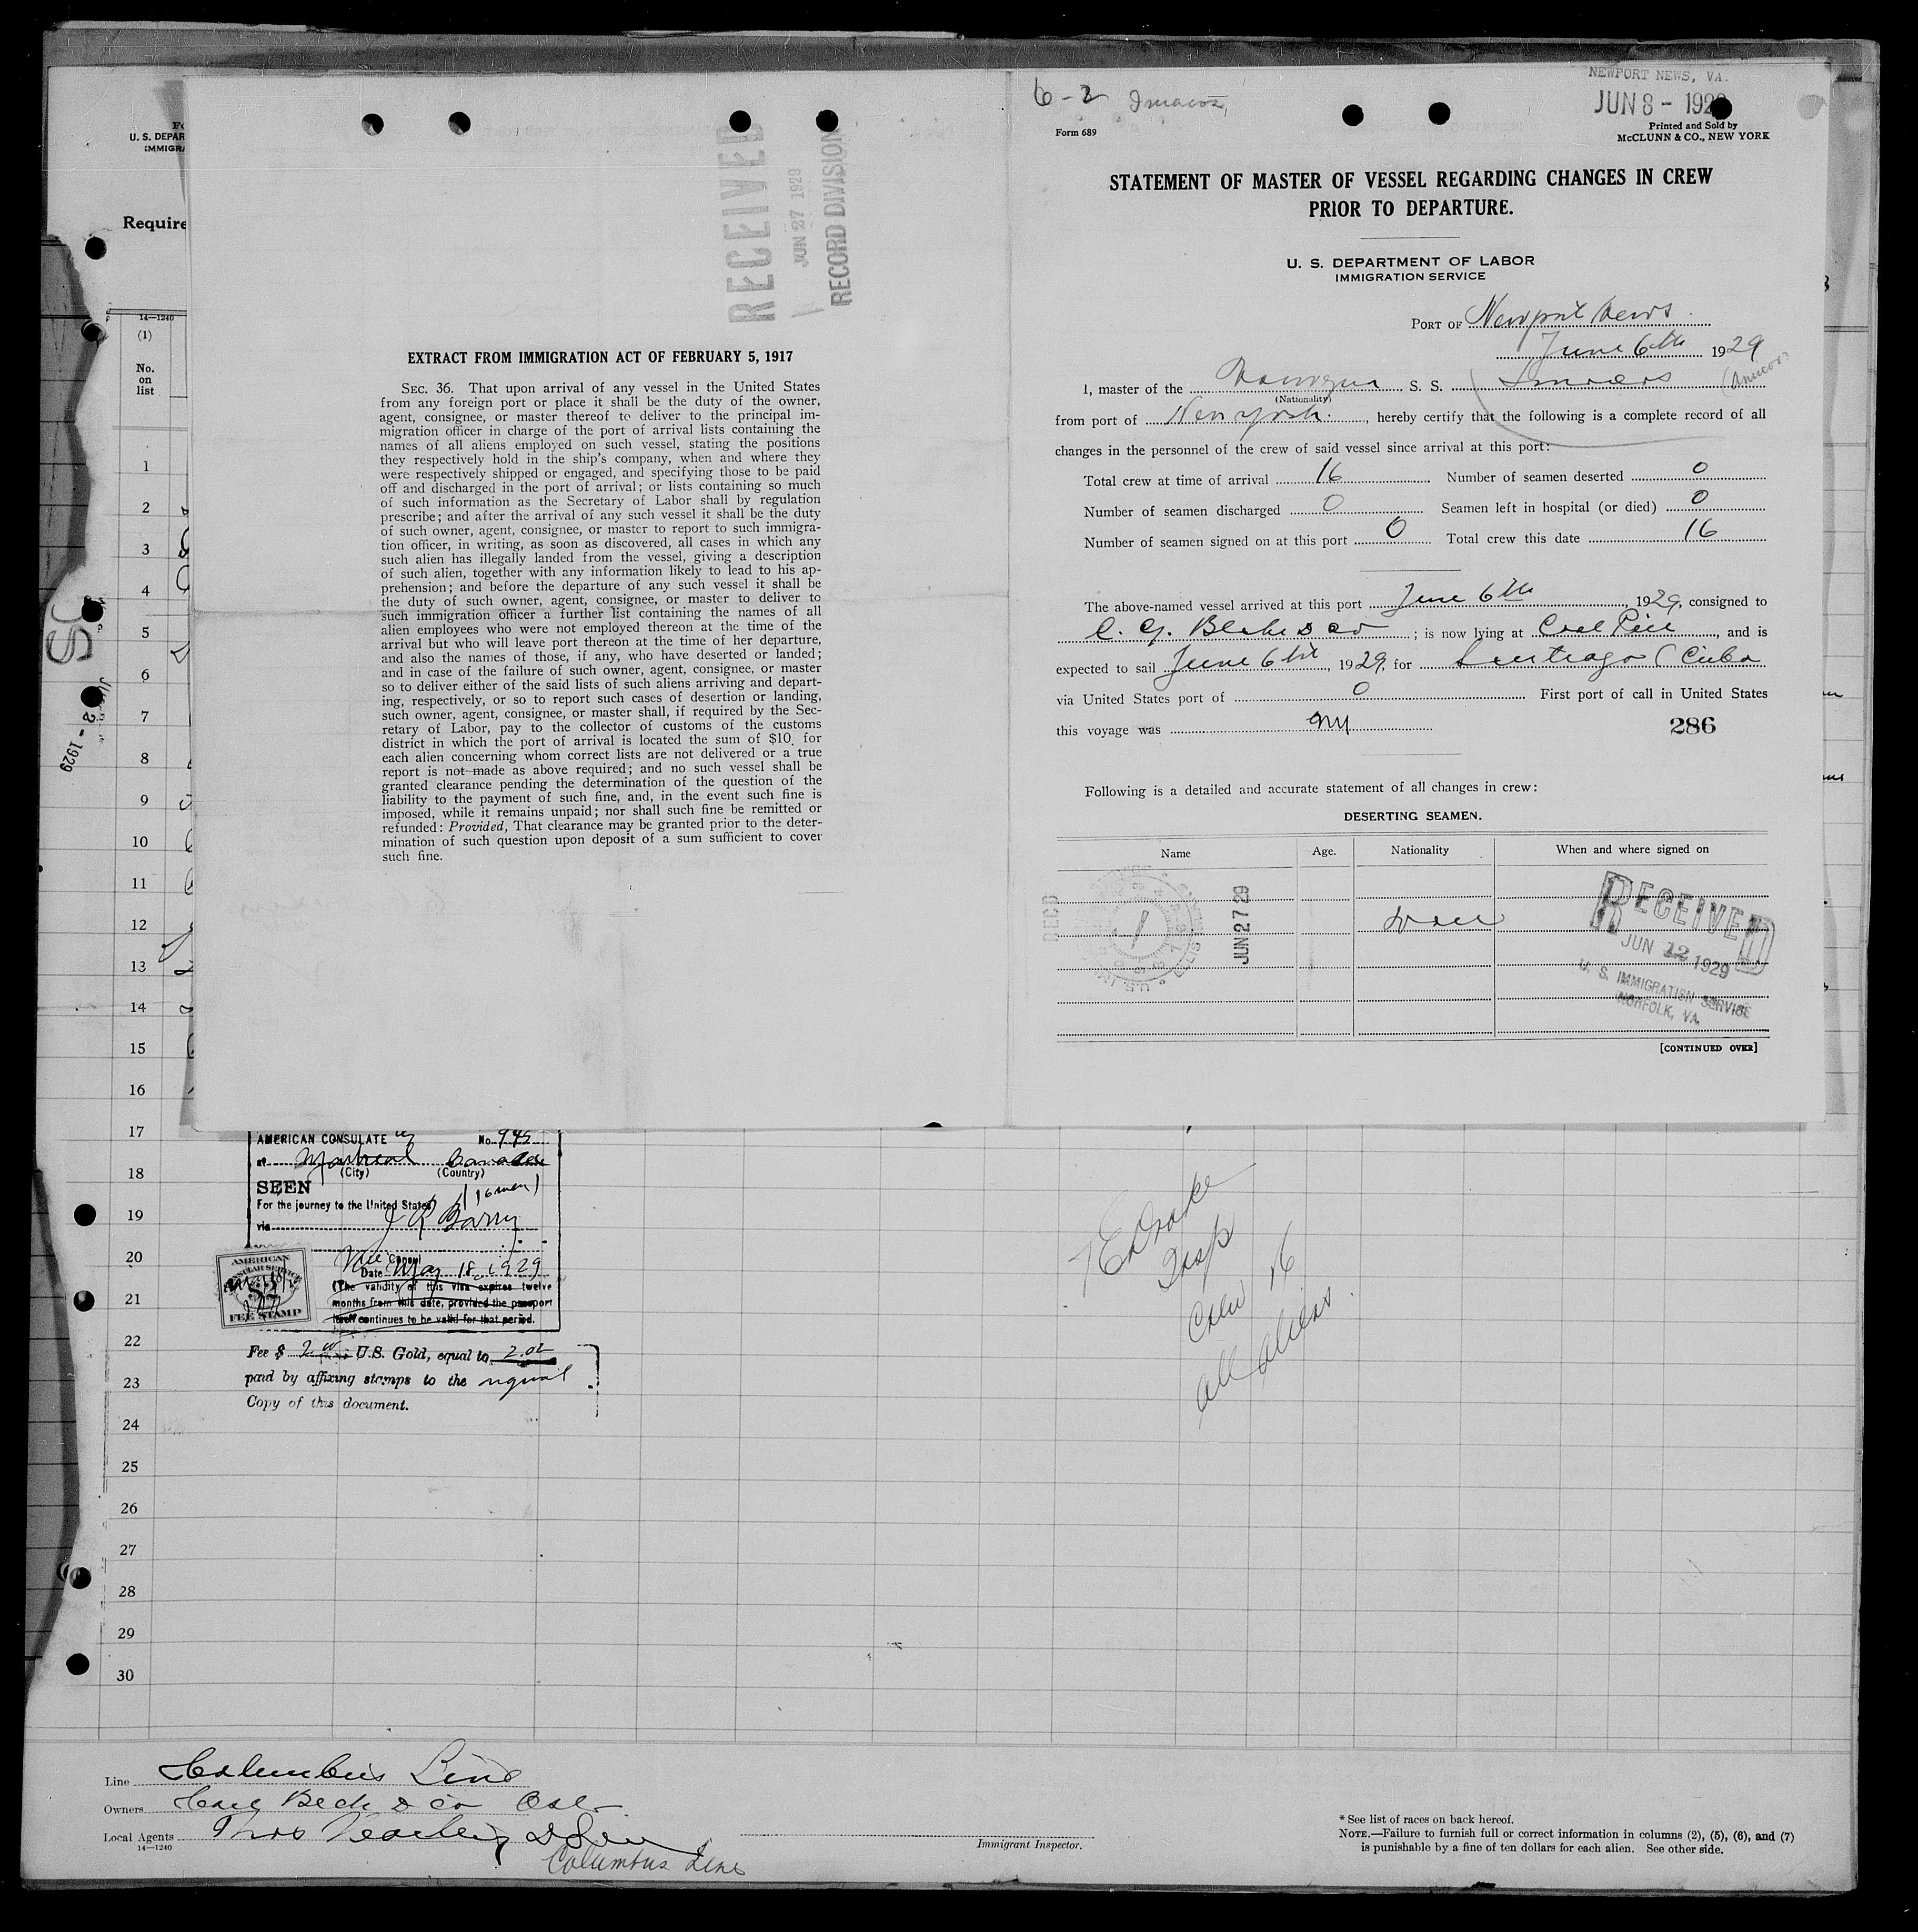 U. S. DEPAR
IMMIGRA
Require
14—1240
(1)
No.
on
list
1
2
3
4
5
6
7
8
9
10
11
12
13
14
15
16
17
18
19
20
21
22
23
24
25
26
27
28
29
30
2 - 1929
RECEIVED
JUN 27 1929
RECORD DIVISION
EXTRACT FROM IMMIGRATION ACT OF FEBRUARY 5, 1917
SEC. 36. That upon arrival of any vessel in the United States
from any foreign port or place it shall be the duty of the owner,
agent, consignee, or master thereof to deliver to the principal im-
migration officer in charge of the port of arrival lists containing the
names of all aliens employed on such vessel, stating the positions
they respectively hold in the ship's company, when and where they
were respectively shipped or engaged, and specifying those to be paid
off and discharged in the port of arrival; or lists containing so much
of such information as the Secretary of Labor shall by regulation
prescribe; and after the arrival of any such vessel it shall be the duty
of such owner, agent, consignee, or master to report to such immigra-
tion officer, in writing, as soon as discovered, all cases in which any
such alien has illegally landed from the vessel, giving a description
of such alien, together with any information likely to lead to his ap-
prehension; and before the departure of any such vessel it shall be
the duty of such owner, agent, consignee, or master to deliver to
such immigration officer a further list containing the names of all
alien employees who were not employed thereon at the time of the
arrival but who will leave port thereon at the time of her departure,
and also the names of those, if any, who have deserted or landed;
and in case of the failure of such owner, agent, consignee, or master
so to deliver either of the said lists of such aliens arriving and depart-
ing, respectively, or so to report such cases of desertion or landing,
such owner, agent, consignee, or master shall, if required by the Sec-
retary of Labor, pay to the collector of customs of the customs
district in which the port of arrival is located the sum of $10 for
each alien concerning whom correct lists are not delivered or a true
report is not made as above required; and no such vessel shall be
granted clearance pending the determination of the question of the
liability to the payment of such fine, and, in the event such fine is
imposed, while it remains unpaid; nor shall such fine be remitted or
refunded: Provided, That clearance may be granted prior to the deter-
mination of such question upon deposit of a sum sufficient to cover
such fine.
6-2
NEWPORT NEWS, VA.
JUN 8 - 1929
Form 689
Printed and Sold by
McCLUNN & CO., NEW YORK
STATEMENT OF MASTER OF VESSEL REGARDING CHANGES IN CREW
PRIOR TO DEPARTURE.
U. S. DEPARTMENT OF LABOR
IMMIGRATION SERVICE
PORT OF Newport News
June 6th 1929
I, master of the Norwegian S. S.
(Nationality)
from port of New York, hereby certify that the following is a complete record of all
changes in the personnel of the crew of said vessel since arrival at this port:
Total crew at time of arrival 16 Number of seamen deserted 0
Number of seamen discharged 0 Seamen left in hospital (or died) 0
Number of seamen signed on at this port 0 Total crew this date 16
The above-named vessel arrived at this port June 6th 1929, consigned to
C. G. Blake & Co; is now lying at Coal Pier, and is
expected to sail June 6th, 1929, for Santiago (Cuba
via United States port of 0 First port of call in United States
this voyage was NY
286
Following is a detailed and accurate statement of all changes in crew:
DESERTING SEAMEN.
Name Age. Nationality When and where signed on
None
REC'D
JUN 27 29
RECEIVED
JUN 12 1929
U. S. IMMIGRATION SERVICE
NORFOLK, VA.
[CONTINUED OVER]
AMERICAN CONSULATE No. 945
at Montreal Canada
(City) (Country)
SEEN
(16 men)
For the journey to the United States
via J R Barry
Vice Consul
Date May 18, 1929
(The validity of this visa expires twelve
months from this date, provided the passport
itself continues to be valid for that period.
AMERICAN
CONSULAR SERVICE
$2
FEE STAMP
Fee $ 2.00 U.S. Gold, equal to 2.02
paid by affixing stamps to the original
Copy of this document.
Drake
Insp
Crew 16
all aliens.
Line Columbus Line
Owners
Local Agents
14—1240
Columbus Line
Immigrant Inspector.
* See list of races on back hereof.
NOTE.—Failure to furnish full or correct information in columns (2), (5), (6), and (7)
is punishable by a fine of ten dollars for each alien. See other side.